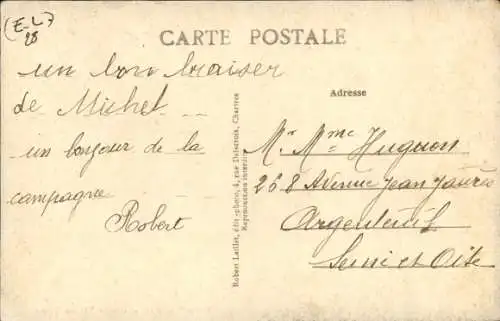 (E-L)
28
CARTE POSTALE
un bon baiser
de Michel
un bonjour de la
campagne
Robert
Robert Laillet, édit.-photo, 4, rue Delacroix, Chartres
Reproduction interdite
Adresse
Mr Mme Huguon
268 Avenue Jean Jaurès
Argenteuil
Seine et Oise